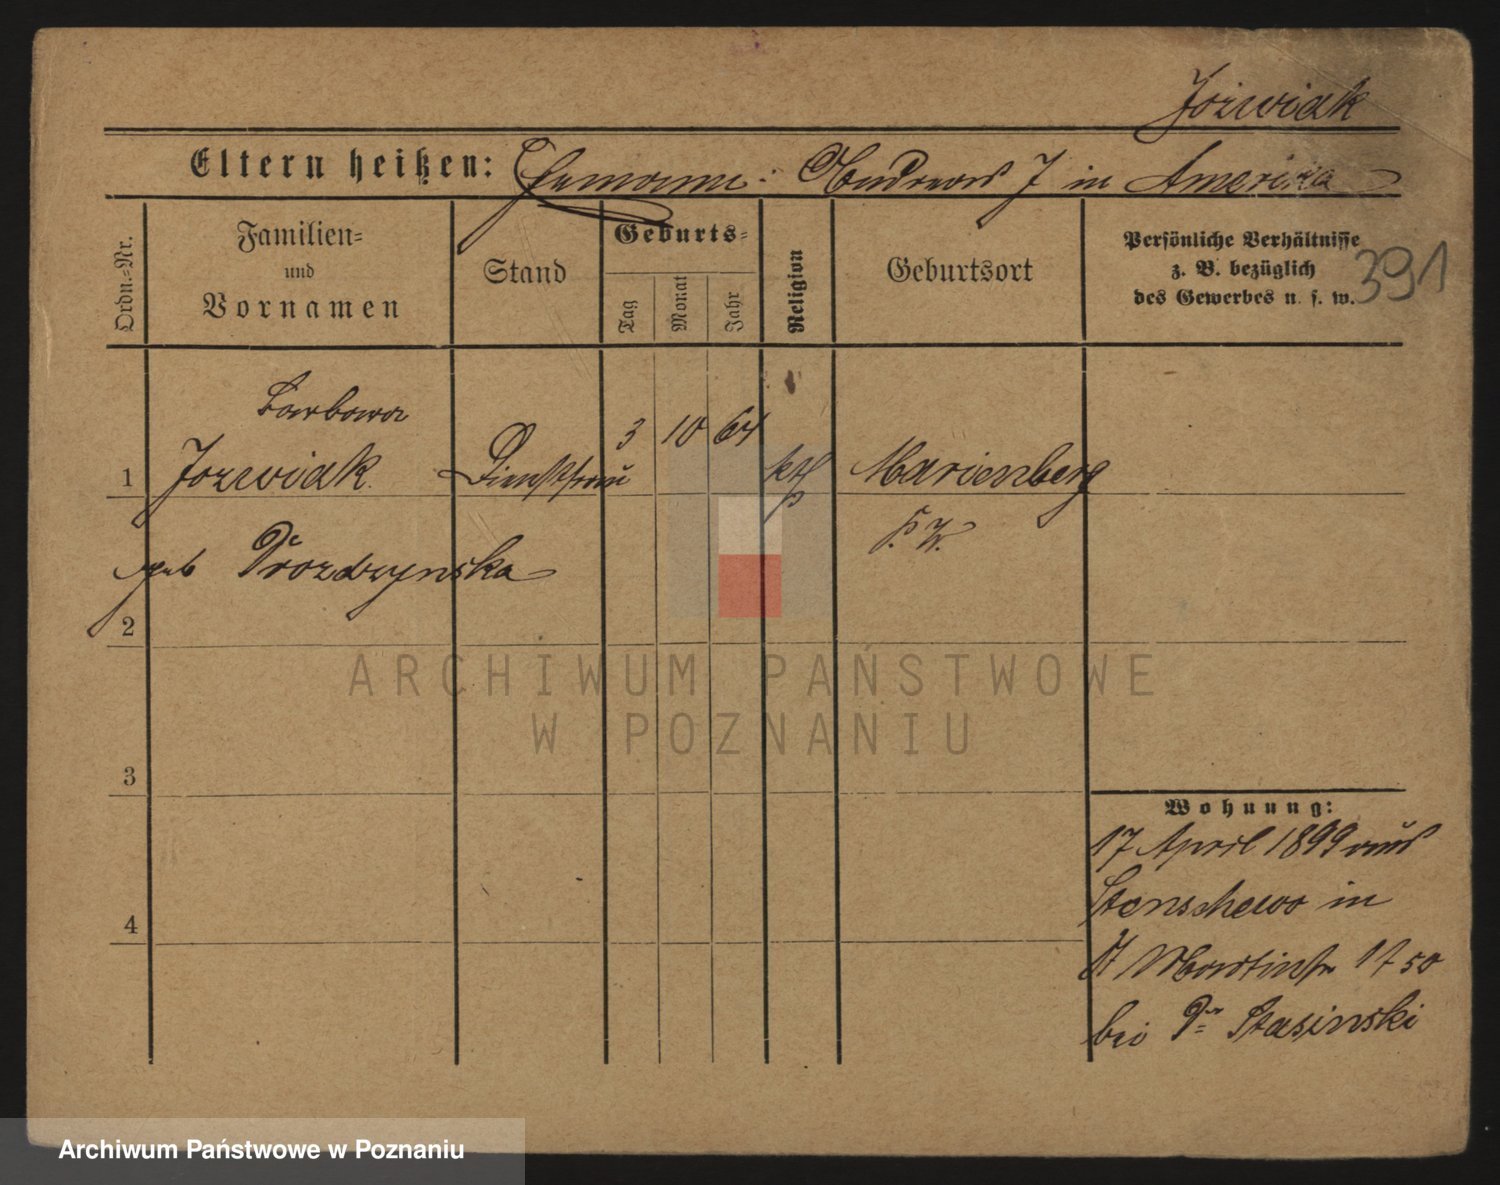 Jozwiak
Eltern heißen: Ehemann: Andreas J in Amerika
Ordn.-Nr.
Familien-
und
Vornamen
Stand
Geburts-
Tag
Monat
Jahr
Religion
Geburtsort
Persönliche Verhältnisse
z. B. bezüglich
des Gewerbes u. s. w.
391
Barbara
1 Jozwiak Dienstfrau 3 10 64 kth Marienberg
P. W.
geb Drozdzynska
2
3
4
Wohnung:
17 April 1899 aus
Stenschewo in
St Martinstr 17 50
bei Dr Stasinski
ARCHIWUM PAŃSTWOWE
W POZNANIU
Archiwum Państwowe w Poznaniu